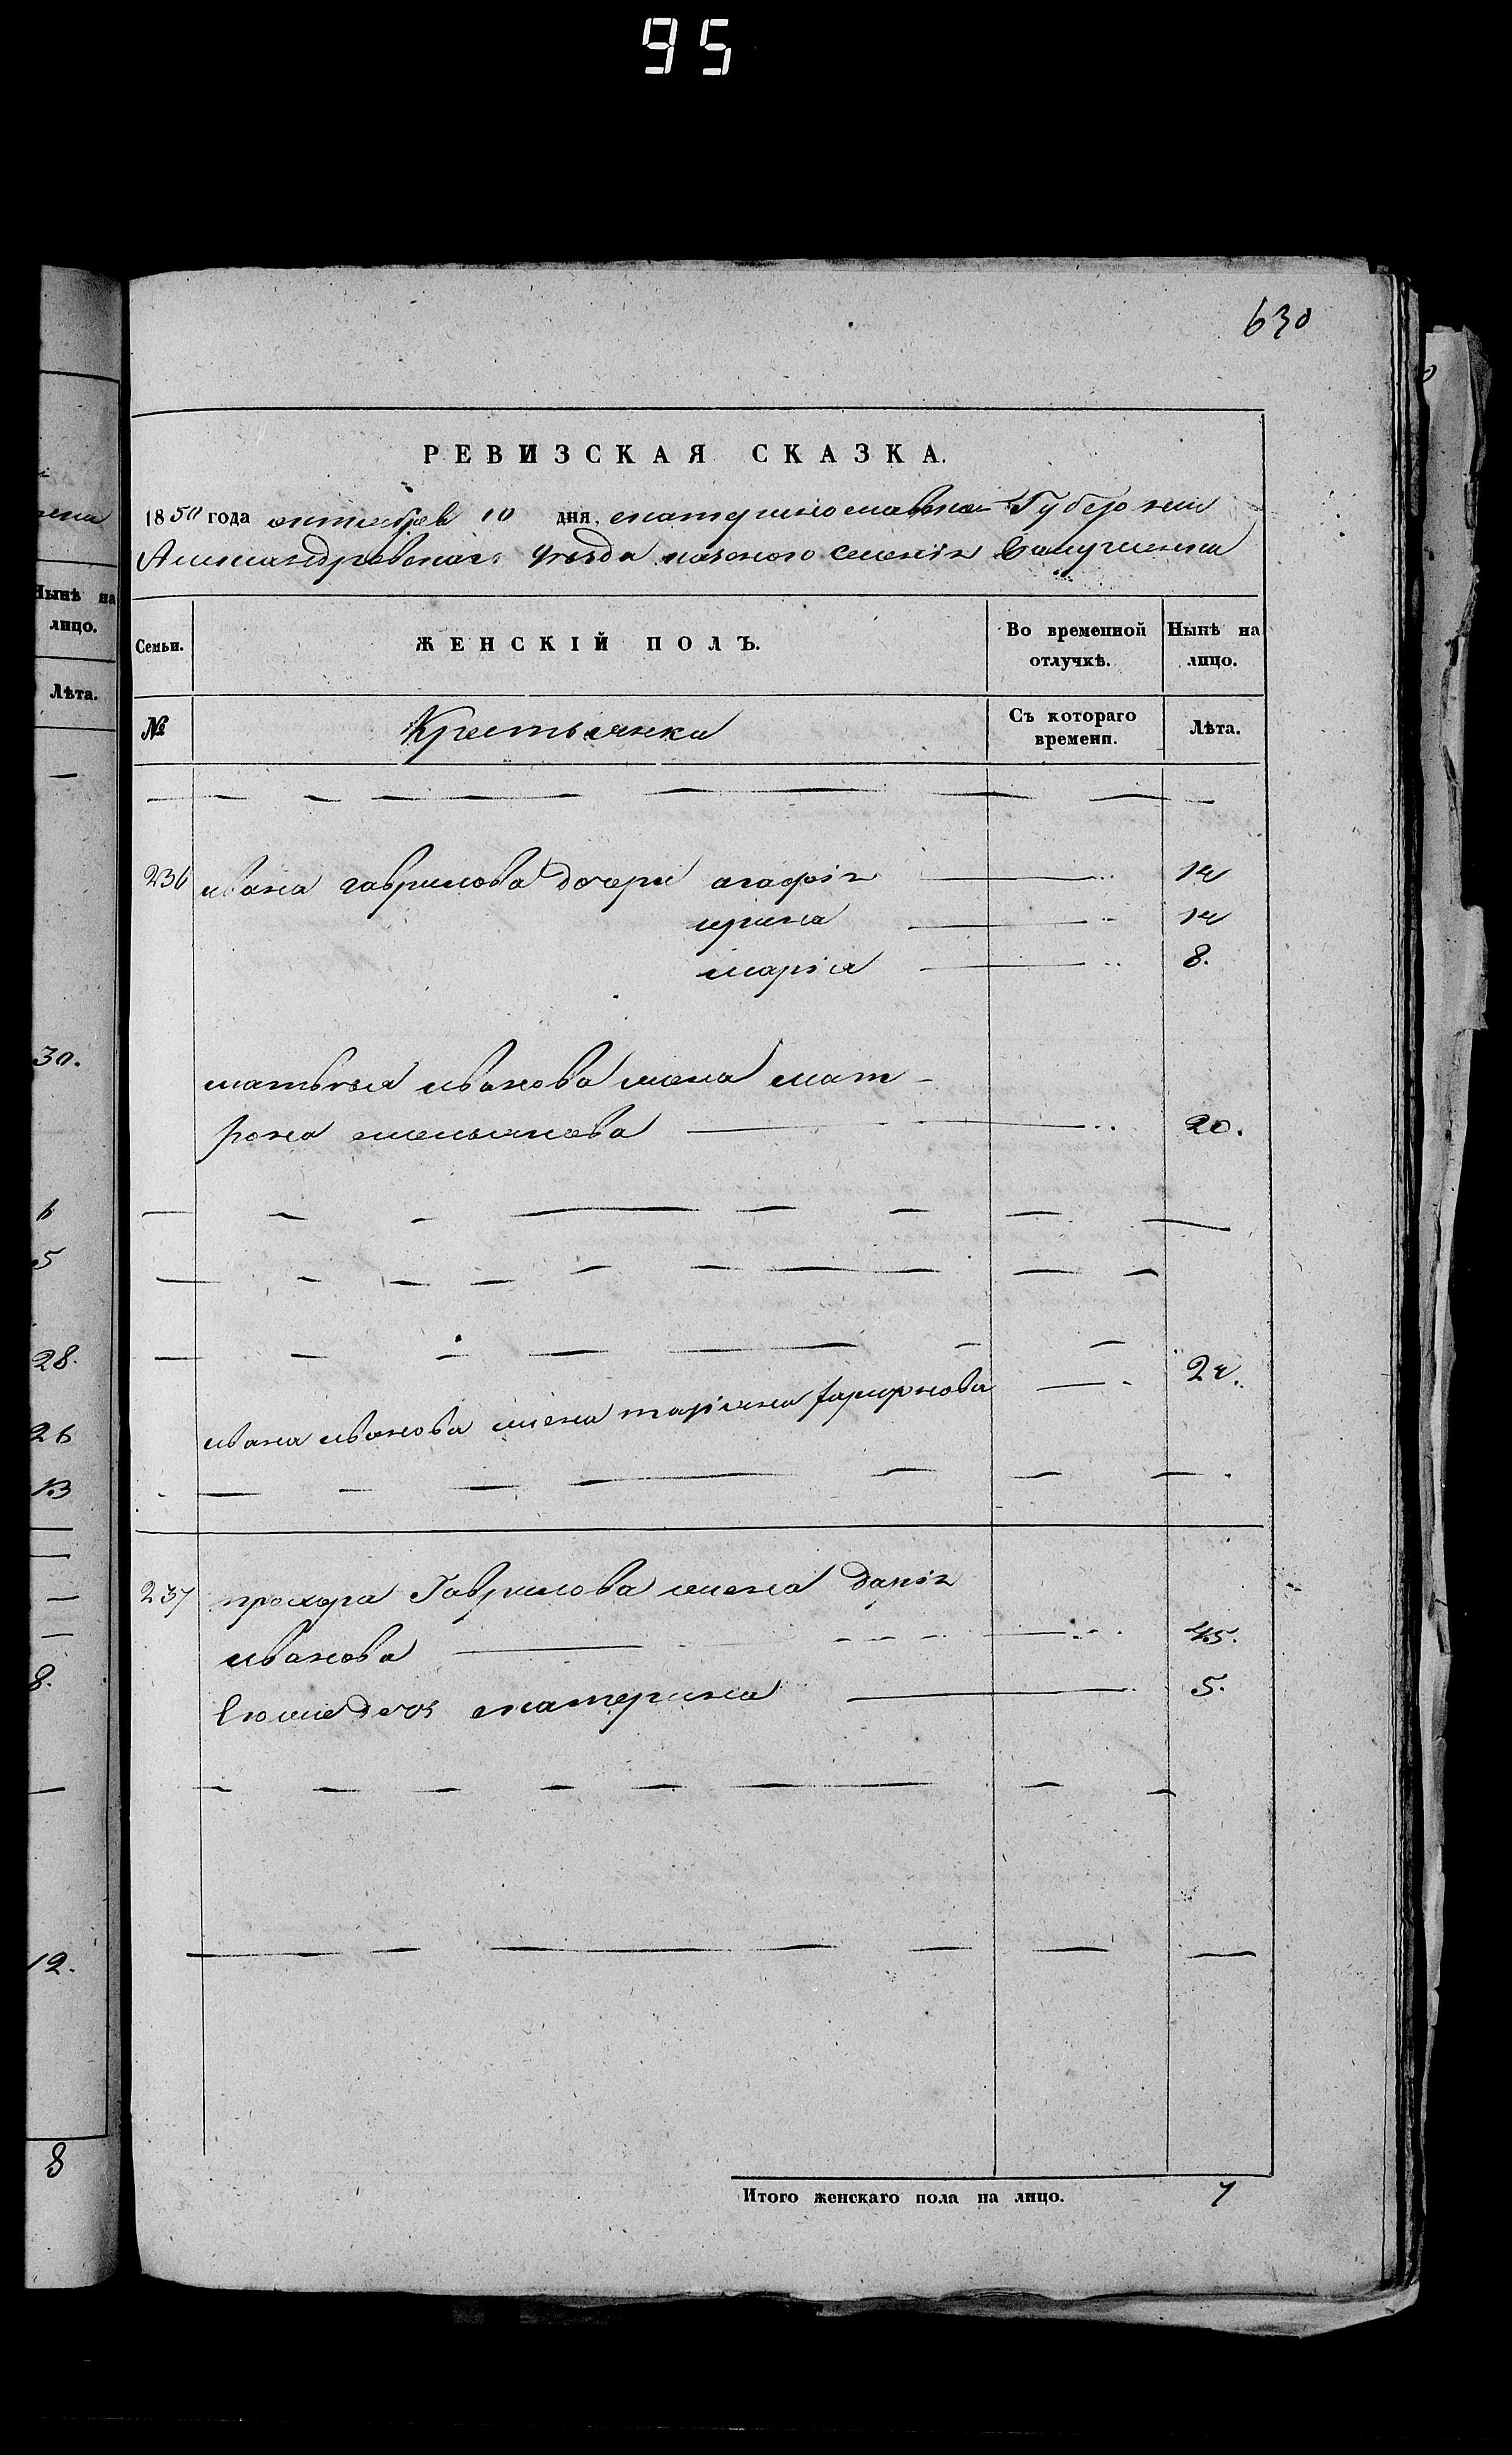 95
630
РЕВИЗСКАЯ СКАЗКА.
1850 года октября 10 дня, екатеринославской Губернии
Александровскаго уезда казеного селенія
Семьи. ЖЕНСКІЙ ПОЛЪ. Во временной отлучкѣ. Нынѣ на лицо.
№ Крестьянки Съ котораго времени. Лѣта.
236 ивана гаврилова дочери агафія 14
ирина 14
марія 8.
матвея иванова жена мат-
рона емельянова 20.
ивана иванова жена 24.
237 прохора Гаврилова жена дарія
иванова 45.
Ево же дочь екатерина 5.
Итого женскаго пола на лицо. 7
Нынѣ на
лицо.
Лѣта.
30.
6
5
28.
26
13
8.
12.
8